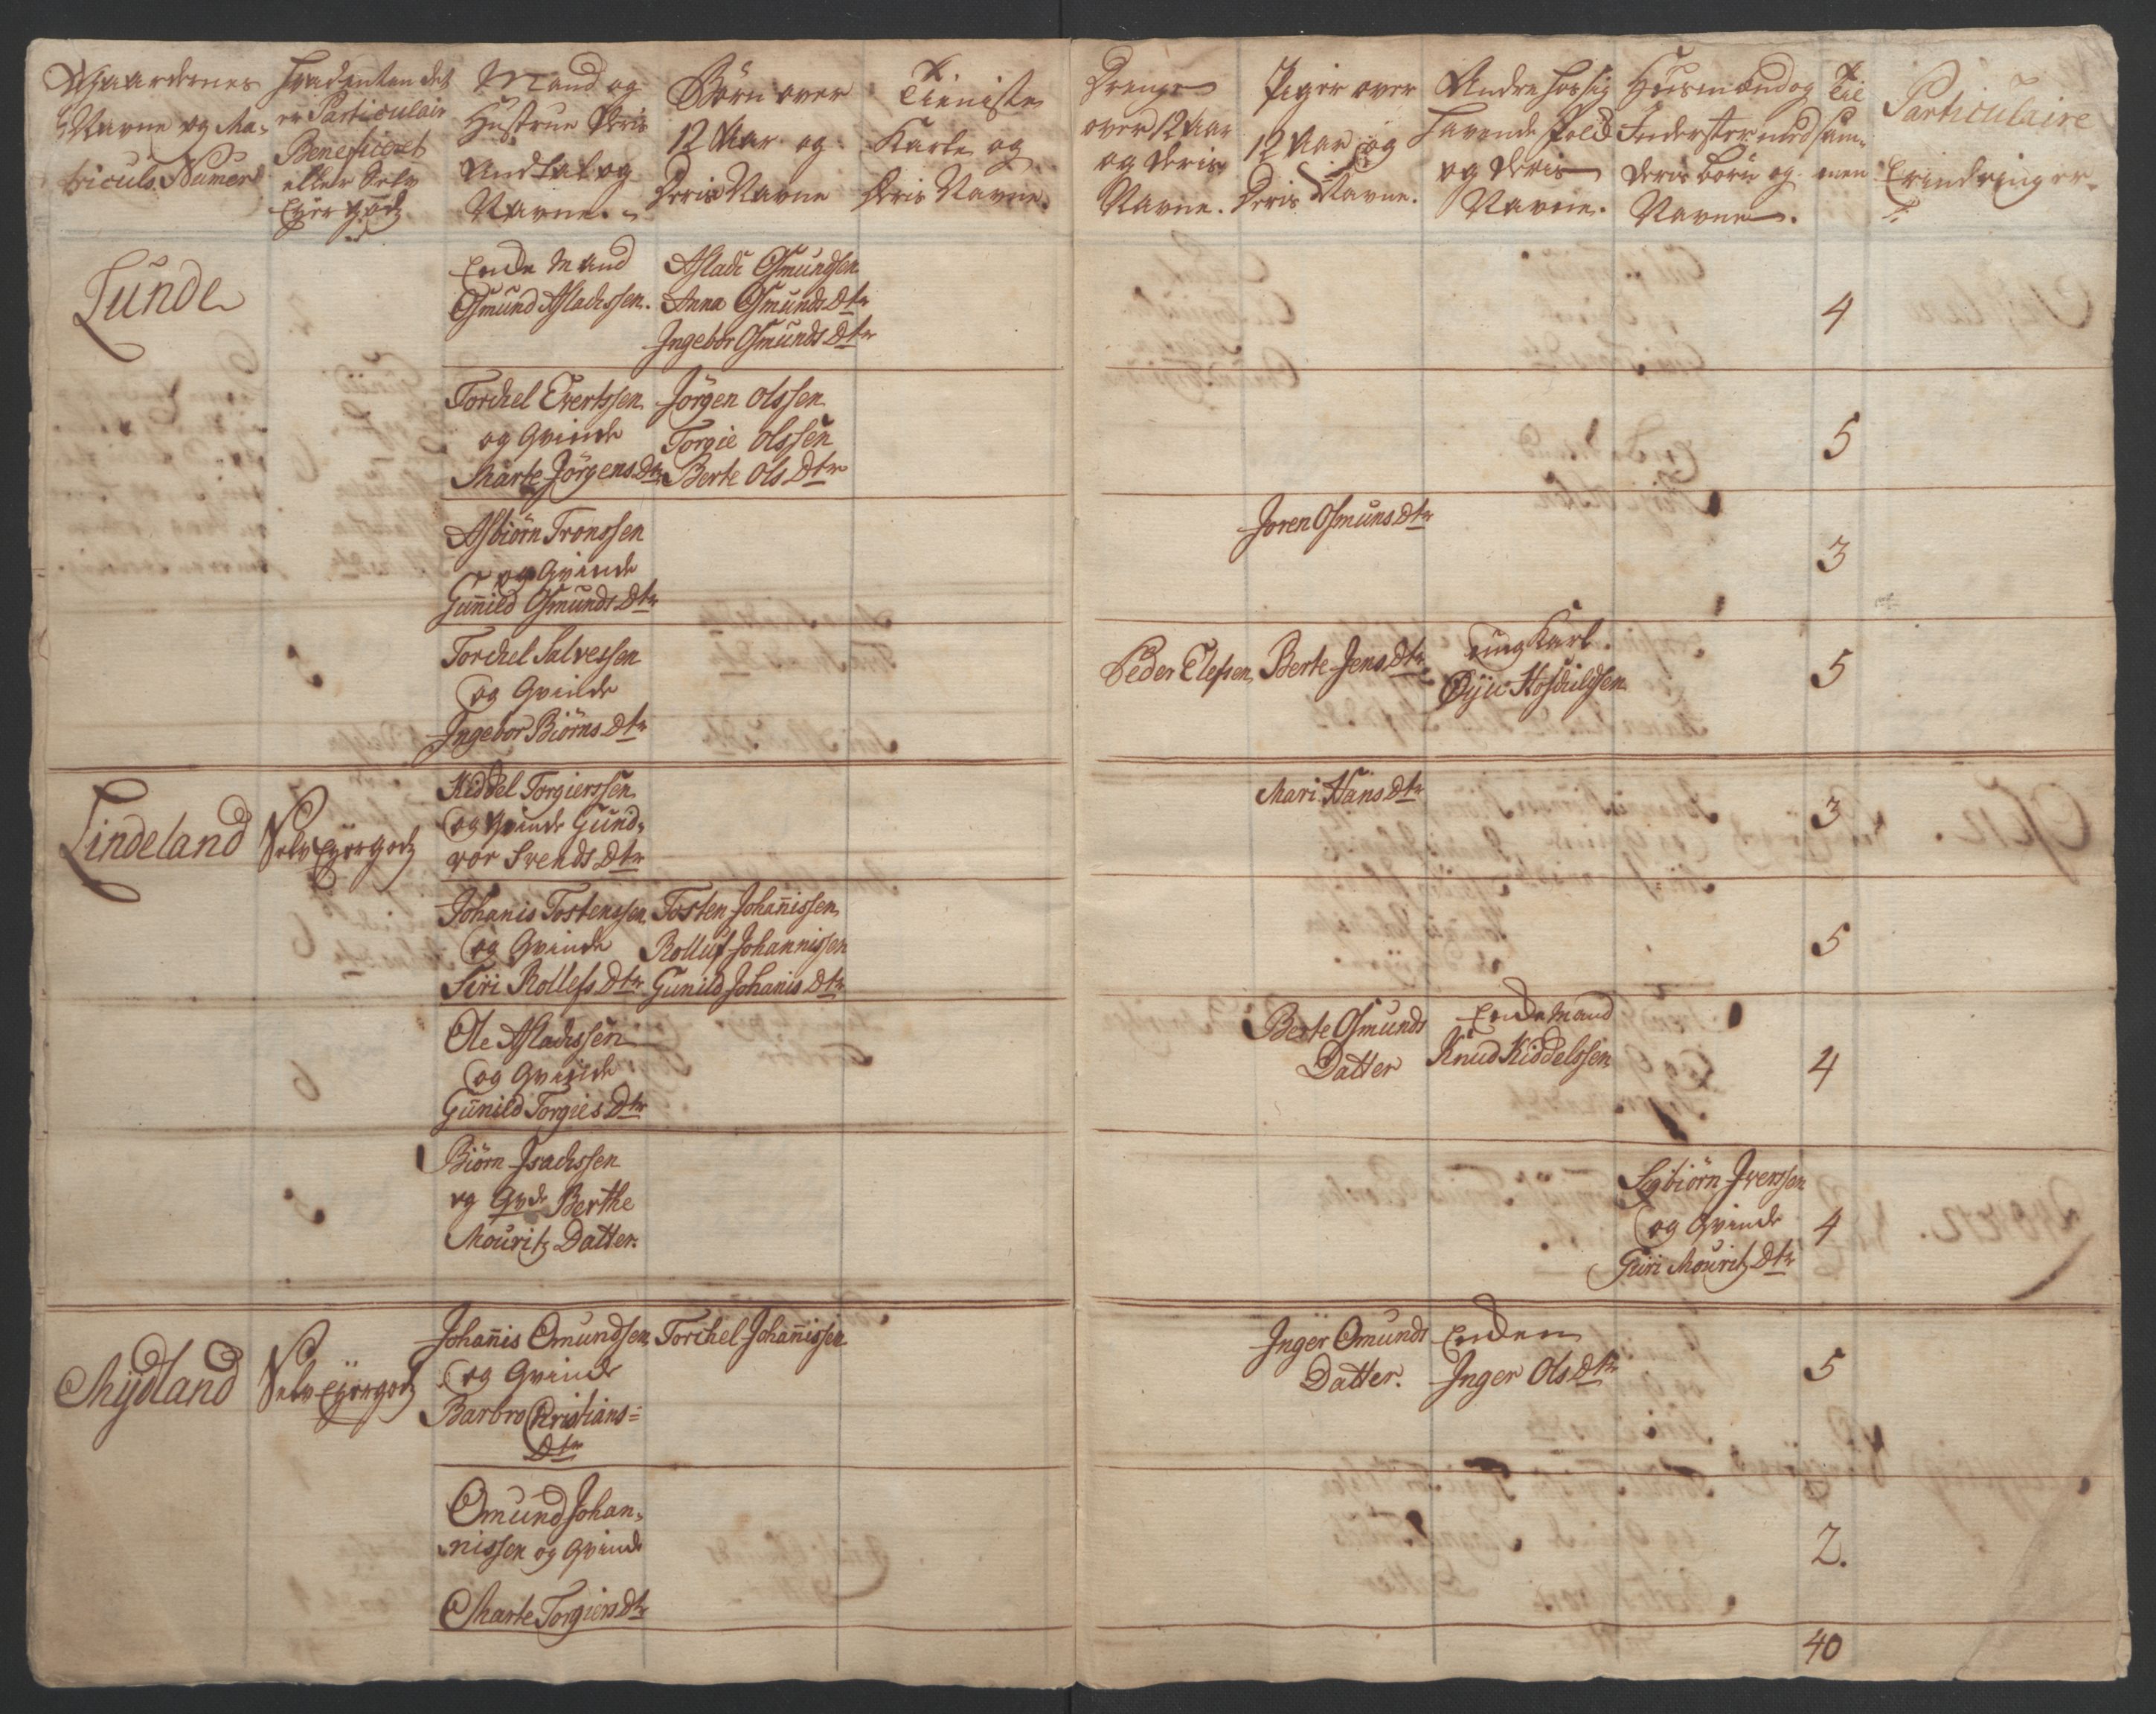 Gaardernes
Navne og Ma-
triculs Numer
hvad enten det
er Particulair
Beneficeret
eller Selv
Eyer gods
Mand og
Hustrue Deris
Andtal og
Navne.
Börn over
12 Aar og
Deris Navne
Tieniste
Karle og
Deris Navne.
Drenge
over 12 Aar
og deris
Navne.
Piger over
12 Aar og
Deris Navne.
Andre hos sig
havende Folk
og deris
Navne.
Huusmænd og
Inderster med
deris börn og
Navne.
Til
sam-
men
Particulaire
Erindringer
Lunde
Encke Mand
Osmund Aslachssen.
Asladi Osmundsen
Anna Osmunds Dtr
Ingebor Osmunds Dtr
4
Torchel Evertssen
og Qvinde
Marte Jörgens Dtr
Jörgen Olssen
Torgie Olssen
Berte Ols Dtr
5
Asbiörn Tronssen
og Qvinde
Gunild Osmunds Dtr
Joren Osmuns Dtr
3
Torchel Salvessen
og Qvinde
Ingebor Biörns Dtr
Peder Elefsen
Berte Jens Dtr
ung Karl
5
Lindeland
Selv Eyergods
Kiddel Torgierssen
og Qvinde Gund-
vor Svends Dtr
Mari Hans Dtr
3
Johanis Tostenssen
og Qvinde
Siri Rollefs Dtr
Tosten Johanissen
Rolluf Johannissen
Gunild Johanis Dtr
5
Ole Aslachssen
og Qvinde
Gunild Torgies Dtr
Berte Osmunds
Datter
Encke Mand
Knud Kiddelssen
4
Biörn Isachssen
og Qvde Berthe
Mouritz Datter.
Sigbiörn Iverssen
og Qvinde
Guri Mouritz Dtr
4
Mydland
Selv Eyergods
Johanis Omundsen
og Qvinde
Barbro Christians-
Dtr
Torchel Johanissen
Inger Omunds
Datter.
Encken
Inger Ols Dtr
5
Omund Johan-
nissen og Qvinde
Marte Torgiers Dtr
2.
40